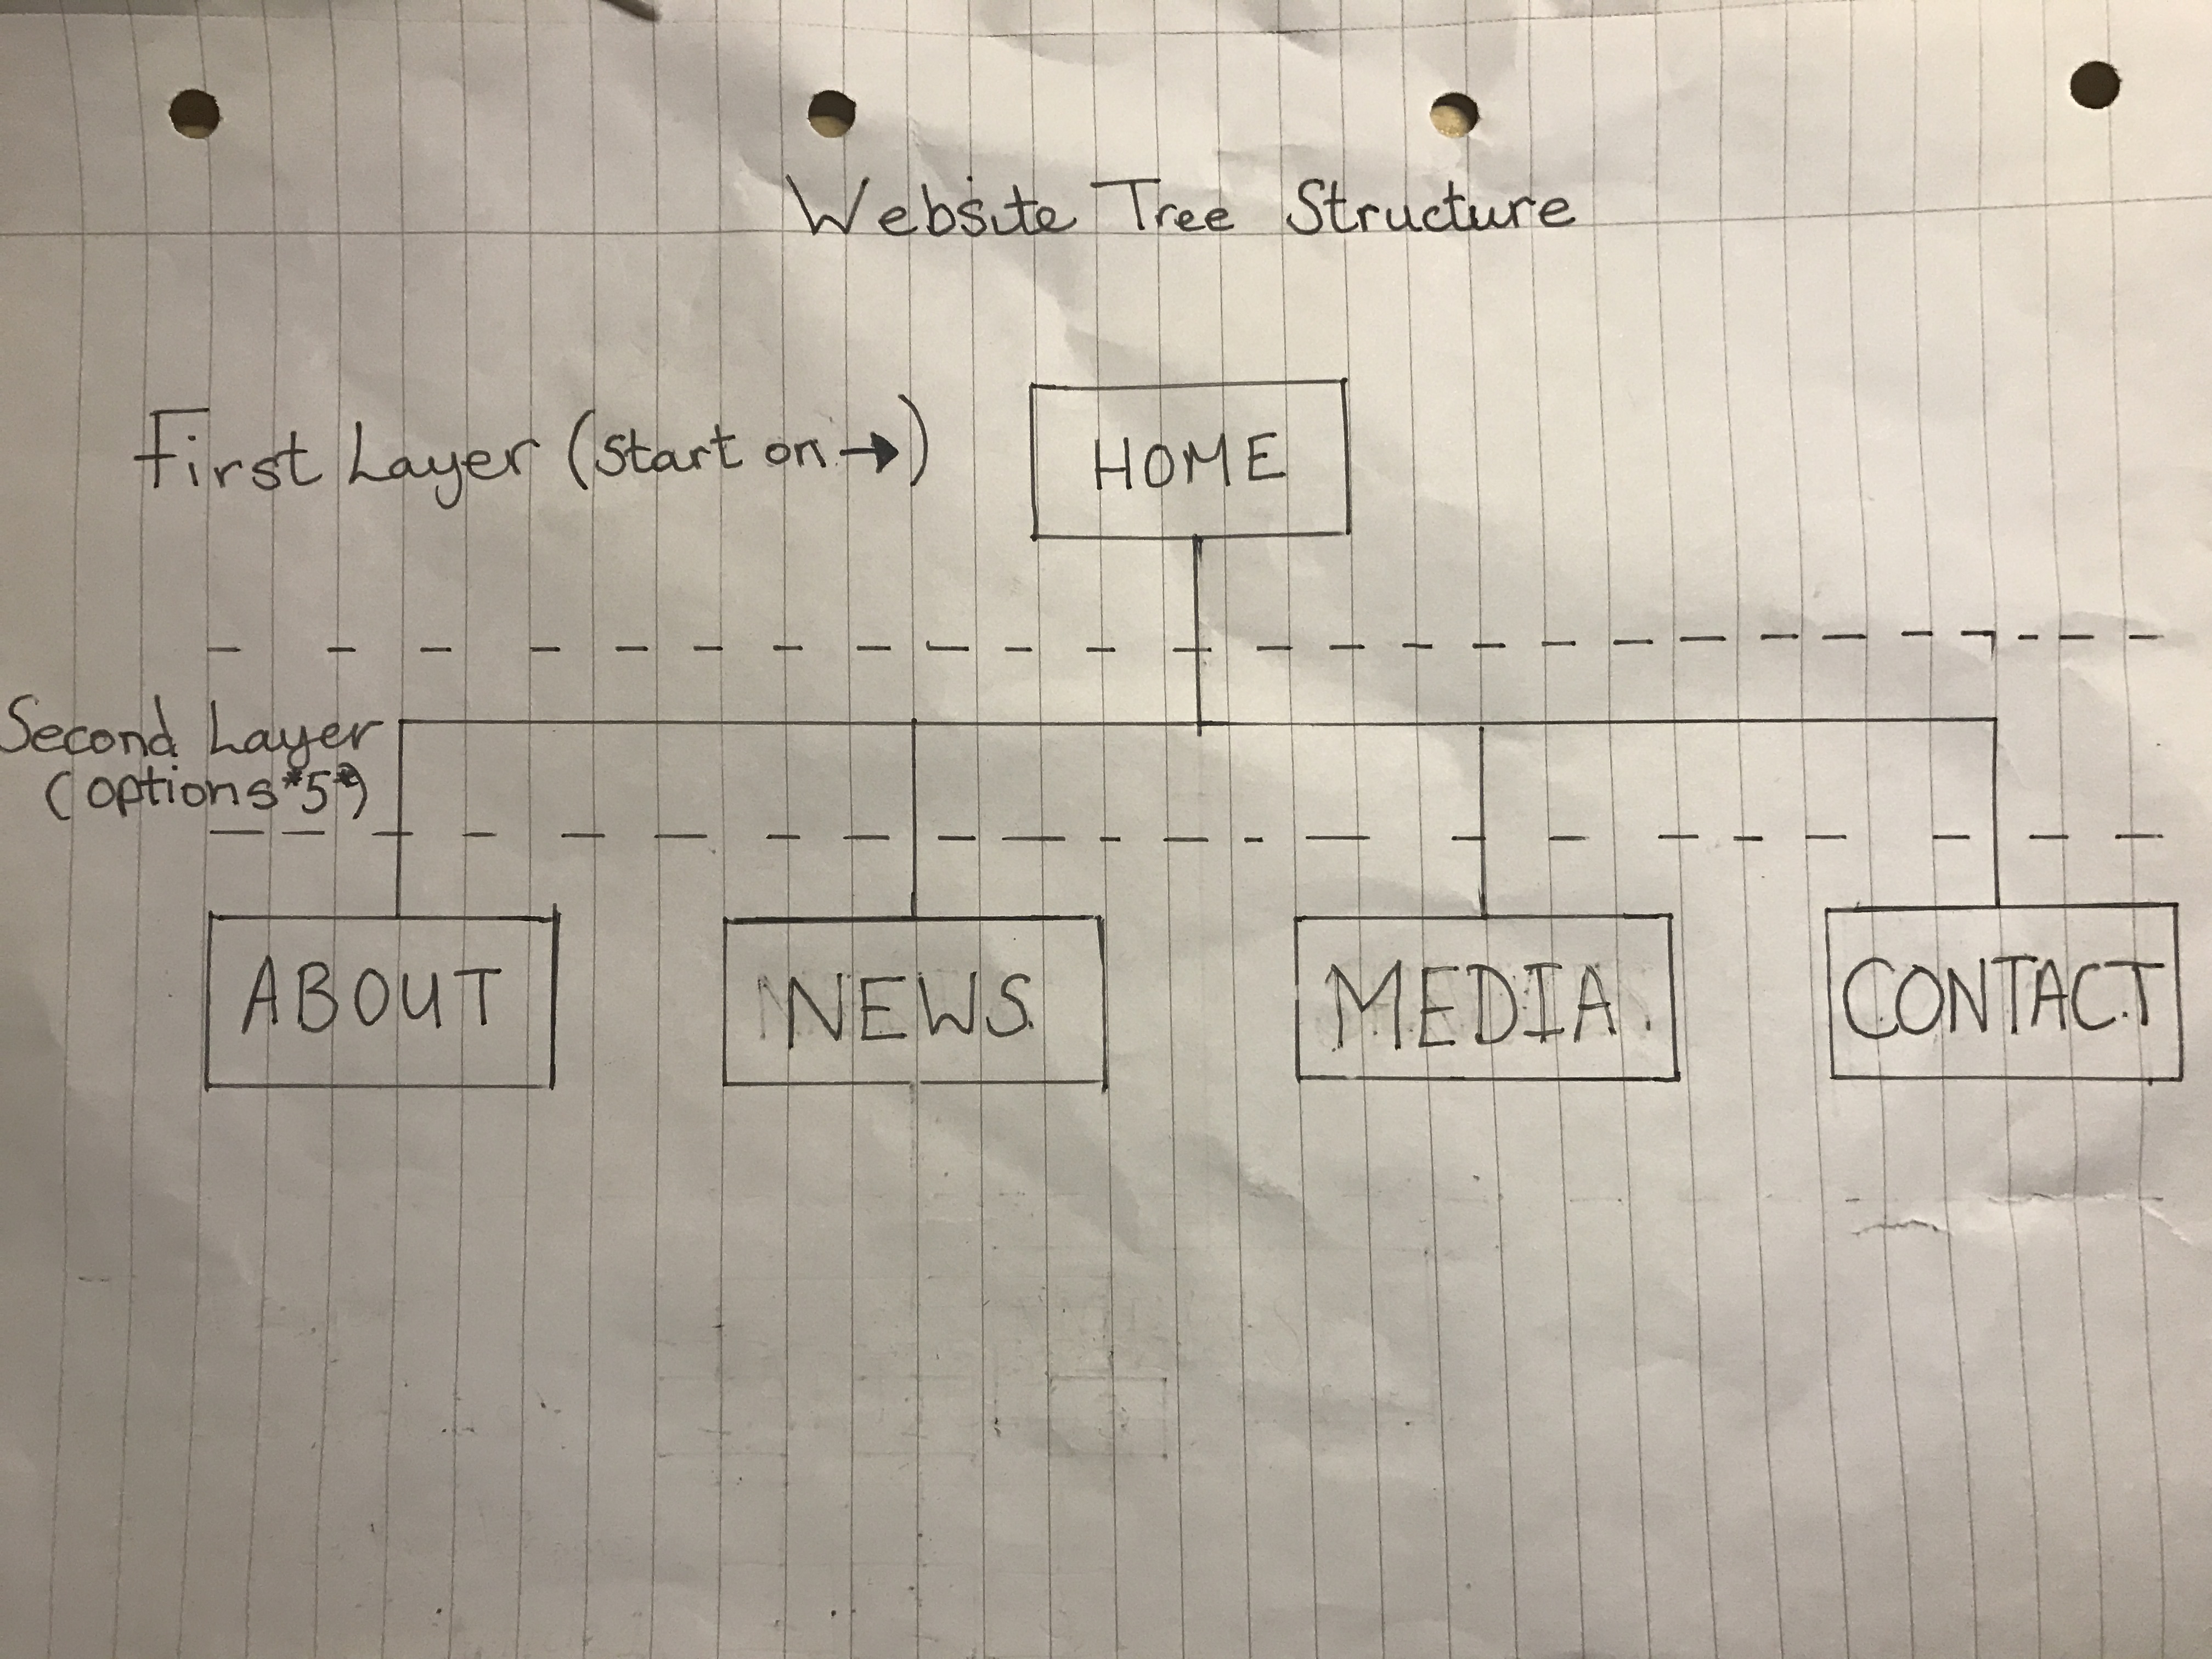 Website Tree Structure
First Layer (Start on →)
HOME
Second Layer
(options *5*)
ABOUT
NEWS
MEDIA
CONTACT